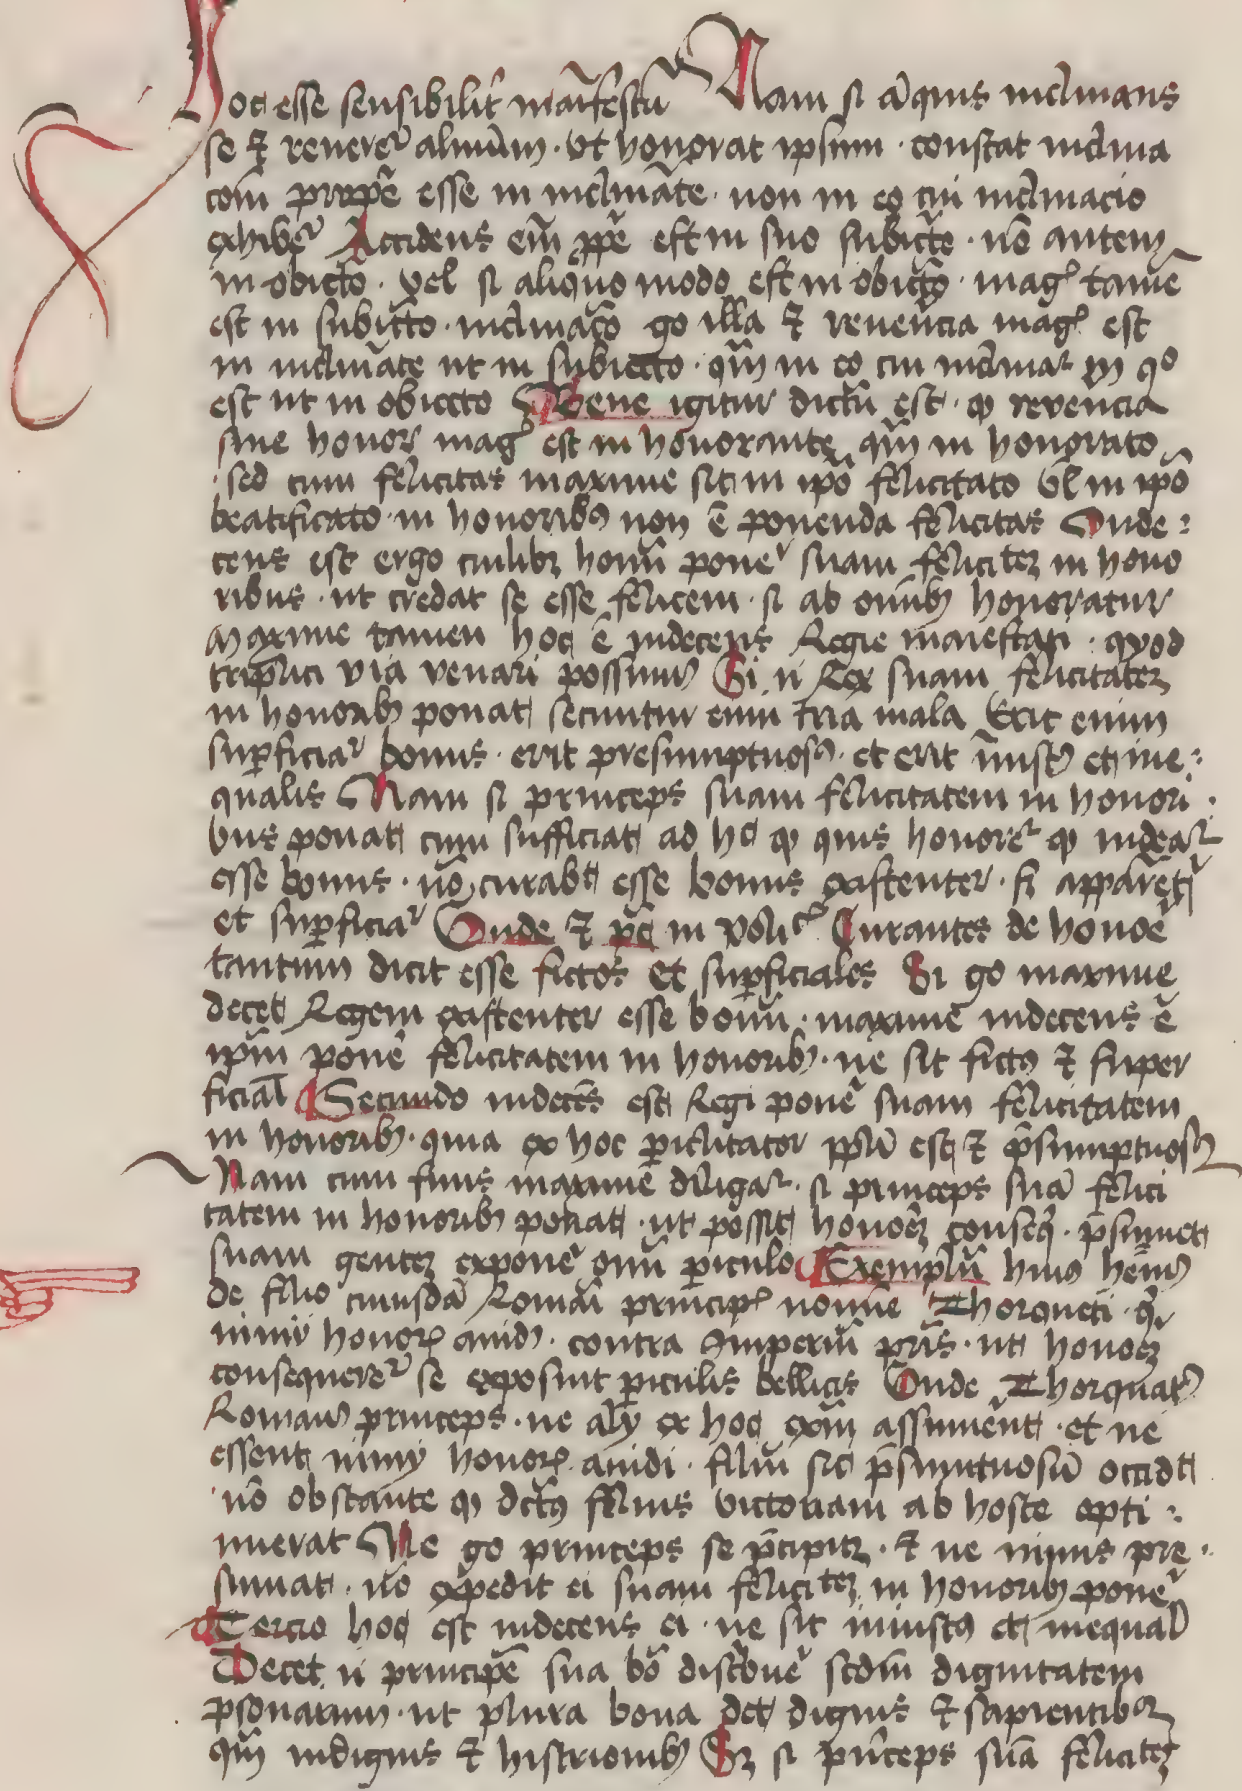 Hoc esse sensibilit̕ maīfestū Nam si aͥquis inclinans
se ⁊ reuereᷣ alinūm · vt honorat ipsum · constat inclina
com̄ prop̄e esse in inclināte · non in eo cui inclinacio
exhibeᷣ Accidens em̄ ꝓpe est in suo subiecto · nō autem
in obiecto · vel si aliquo modo est in obiecto · mag̕ tamē
est in subiecto · inclinaco go illa ⁊ reueren̄cia mag̕ est
in inclināte ut in subiecto · qm̄ in eo cui inclinaᷣ in qͦ
est ut in obiecto Bene igitur dictū est · ꝙ reuencia
siue honor mag̕ est in honorante qm̄ in honorato
sed cum felicitas maxime sit in ip̄o felicitato vl̄ in ip̄o
beatificato in honoribꝰ non ē ponenda felicitas Inde :
cens est ergo cuilibꝫ homī poneᷣ suam felicitꝫ in hono
ribus · ut credat se esse felicem · si ab omībꝫ honoratur
Maxime tamen hoc ē indecens Regie maiestati · quod
triplici via venari possumꝰ Si n̄ Rex suam felicitatēꝫ
in honoribꝫ ponat secuntur enim tria mala Erit enim
suꝑficiaᷣ bonus · erit presumptuosꝰ · et erit iniustꝰ et ine :
qualis Nam si princeps suam felicitatem in honori ·
bus ponat cum sufficiat ad hc̄ ꝙ quis honoreᷣ ꝙ uideaᷣ
esse bonus · nō curabit esse bonus existenter · s̄ apparēt̕
et suꝑficiaᷣ Unde ⁊ ph̄c in poli͛ Curantes de honoē
tantum dicit esse fictos et suꝑficiales Si go maxime
decet Regem existenter esse bonū · maxime indecens ē
ip̄m ponē felicitatem in honoribꝫ · ne sit fictꝰ ⁊ super
ficial̄ Secundo indecēs est Regi ponē suam felicitatem
in honoribꝫ · quia ex hoc ꝑiclitator ppl̄i est ⁊ p̄sumptuosꝰ
Nam cum finis maxime diligaᷣ · si princeps suā felici
tatem in honoribꝫ ponat · ut possit honoēꝫ conseq̄ · p̄sumet
suam gentēꝫ exponē om̄i ꝑiculo Exemplū huiꝰ hēmꝰ
de filio cuiusdā Romāi princip̕ nomine Thorquati · qͥ
nimis honor̕ auidꝰ · contra imperiū pr̄is · ut honoēꝫ
consequereᷣ se exposuit ꝑiculis bellicis Unde Thorquatꝰ
Romanꝰ princeps · ne alij ex hoc exm̄ assumēnt · et ne
essent nimij honor̕ auidi · filiū sic p̄sumtuosū occidit
nō obstante ꝙ dc̄tꝰ filius victoriam ab hoste opti :
nuerat Ne go princeps se p̄cipitꝫ · ⁊ ne nimis pre ·
sumat · nō expedit ei suam felicitꝫ in honoribꝫ poneᷣ
Tercio hoc est indecens ei · ne sit iniustꝰ et inequal̕
Decet n̄ principē sua bō distͥbueᷣ scdm̄ dignitatem
ꝑsonarum · ut plura bona det dignis ⁊ sapientibꝰ
qm̄ indignis ⁊ histrionibꝫ Sꝫ si princeps suā felicitēꝫ